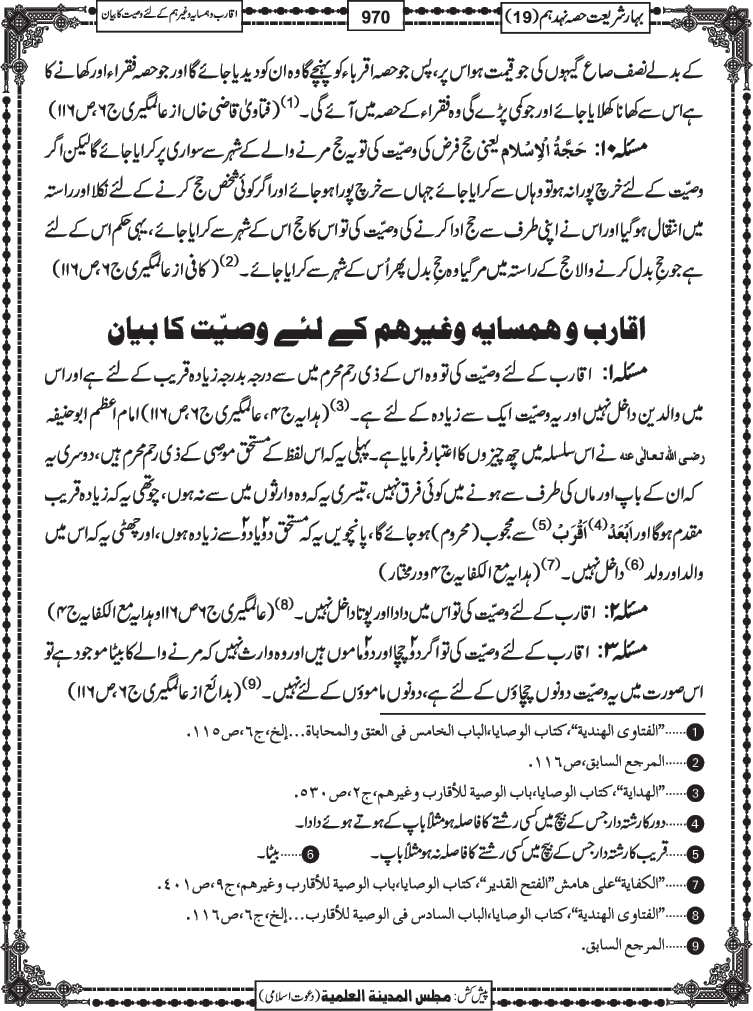 بہارِ شریعت حصہ نہدہم (19)
970
اقارب و ہمسایہ وغیرہم کے لئے وصیت کا بیان
کے بدلے نصف صاع گیہوں کی جو قیمت ہو اس پر، پس جو حصہ اقرباء کو پہنچے گا وہ ان کو دیدیا جائے گا اور جو حصہ فقراء اور کھانے کا
ہے اس سے کھانا کھلایا جائے اور جو کمی پڑے گی وہ فقراء کے حصہ میں آئے گی۔(1) (فتاویٰ قاضی خاں از عالمگیری ج۶، ص۱۱۶)
مسئلہ ۱۰: حَجَّۃُ الْاِسْلَام یعنی حج فرض کی وصیّت کی تو یہ حج مرنے والے کے شہر سے سواری پر کرایا جائے گا لیکن اگر
وصیّت کے لئے خرچ پورا نہ ہو تو وہاں سے کرایا جائے جہاں سے خرچ پورا ہو جائے اور اگر کوئی شخص حج کرنے کے لئے نکلا اور راستہ
میں انتقال ہو گیا اور اس نے اپنی طرف سے حج ادا کرنے کی وصیّت کی تو اس کا حج اس کے شہر سے کرایا جائے، یہی حکم اس کے لئے
ہے جو حجِ بدل کرنے والا حج کے راستہ میں مر گیا وہ حجِ بدل پھر اُس کے شہر سے کرایا جائے۔(2) (کافی از عالمگیری ج۶، ص۱۱۶)
اقارب و ہمسایہ وغیرہم کے لئے وصیّت کا بیان
مسئلہ ۱: اقارب کے لئے وصیّت کی تو وہ اس کے ذی رحم محرم میں سے درجہ بدرجہ زیادہ قریب کے لئے ہے اور اس
میں والدین داخل نہیں اور یہ وصیّت ایک سے زیادہ کے لئے ہے۔(3) (ہدایہ ج۴، عالمگیری ج۶، ص۱۱۶) امام اعظم ابوحنیفہ
رضی اللہ تعالٰی عنہ نے اس سلسلہ میں چھ چیزوں کا اعتبار فرمایا ہے۔ پہلی یہ کہ اس لفظ کے مستحق موصِی کے ذی رحم محرم ہیں، دوسری یہ
کہ ان کے باپ اور ماں کی طرف سے ہونے میں کوئی فرق نہیں، تیسری یہ کہ وہ وارثوں میں سے نہ ہوں، چوتھی یہ کہ زیادہ قریب
مقدم ہوگا اور اَبْعَدُ(4) اَقْرَبْ(5) سے مجحوب (محروم) ہو جائے گا، پانچویں یہ کہ مستحق دو۲ یا دو۲ سے زیادہ ہوں، اور چھٹی یہ کہ اس میں
والد اور ولد(6) داخل نہیں۔(7) (ہدایہ مع الکفایہ ج۴ و درمختار)
مسئلہ ۲: اقارب کے لئے وصیّت کی تو اس میں دادا اور پوتا داخل نہیں۔(8) (عالمگیری ج۶ ص۱۱۶ و ہدایہ مع الکفایہ ج۴)
مسئلہ ۳: اقارب کے لئے وصیّت کی تو اگر دو۲ چچا اور دو۲ ماموں ہیں اور وہ وارث نہیں کہ مرنے والے کا بیٹا موجود ہے تو
اس صورت میں یہ وصیّت دونوں چچاؤں کے لئے ہے، دونوں ماموؤں کے لئے نہیں۔(9) (بدائع از عالمگیری ج۶، ص۱۱۶)
1......"الفتاوی الھندیة"، کتاب الوصایا، الباب الخامس فی العتق والمحاباة...إلخ، ج۶، ص۱۱۵.
2......المرجع السابق، ص۱۱۶.
3......"الھدایة"، کتاب الوصایا، باب الوصیة للأقارب وغیرھم، ج۲، ص۵۳۰.
4......دور کا رشتہ دار جس کے بیچ میں کسی رشتے کا فاصلہ ہو مثلاً باپ کے ہوتے ہوئے دادا۔
5......قریب کا رشتہ دار جس کے بیچ میں کسی رشتے کا فاصلہ نہ ہو مثلاً باپ۔ 6......بیٹا۔
7......"الکفایة" علی ھامش "الفتح القدیر"، کتاب الوصایا، باب الوصیة للأقارب وغیرھم، ج۹، ص۴۰۱.
8......"الفتاوی الھندیة"، کتاب الوصایا، الباب السادس فی الوصیة للأقارب...إلخ، ج۶، ص۱۱۶.
9......المرجع السابق.
پیش کش: مجلس المدینة العلمیة (دعوت اسلامی)